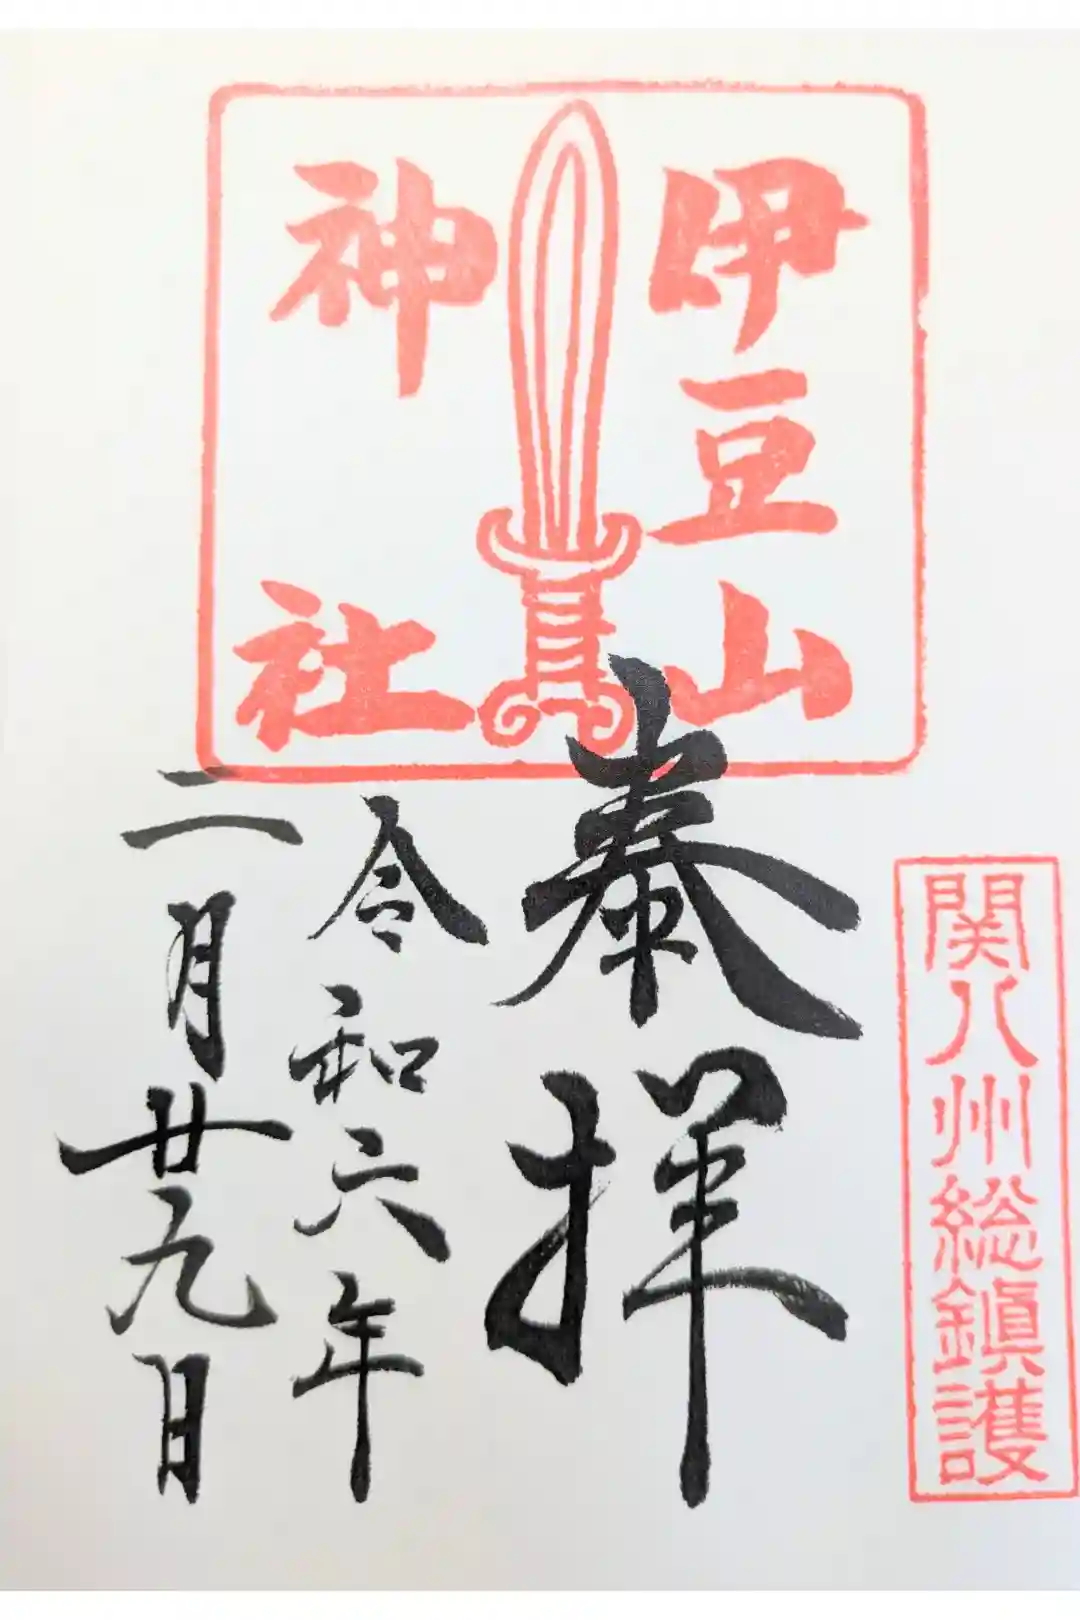 関八州総鎮護
伊豆山
神社
奉拝
令和六年
二月廿九日